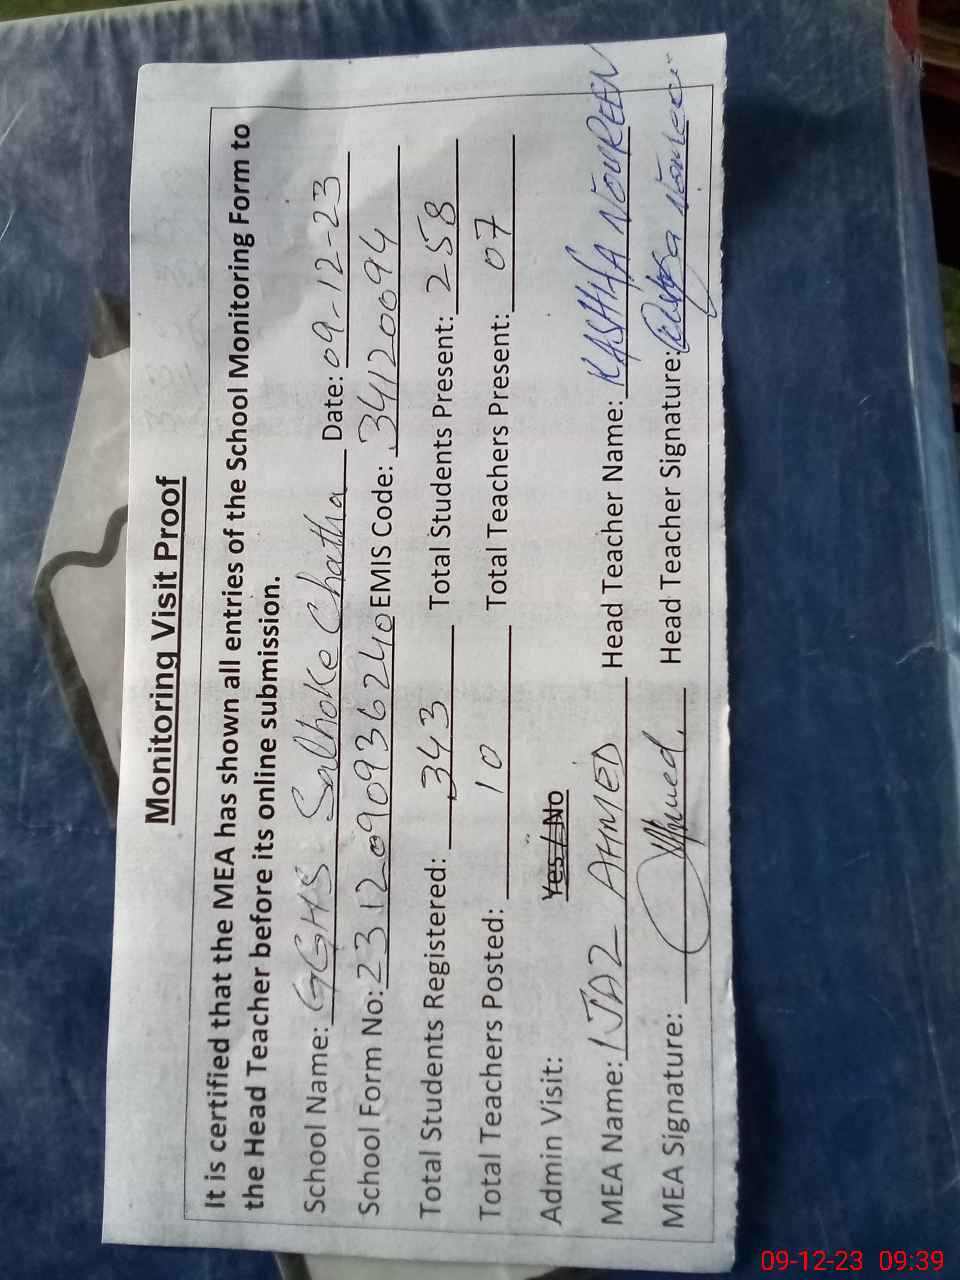 Monitoring Visit Proof
It is certified that the MEA has shown all entries of the School Monitoring Form to
the Head Teacher before its online submission.
School Name: GGHS Salhoke Chatha Date: 09-12-23
School Form No: 2312090936240 EMIS Code: 34120094
Total Students Registered: 343 Total Students Present: 258
Total Teachers Posted: 10 Total Teachers Present: 07
Admin Visit: Yes / No
MEA Name: IJAZ AHMED Head Teacher Name: KASHIFA NOUREEN
MEA Signature: Ahmed. Head Teacher Signature:
09-12-23 09:39